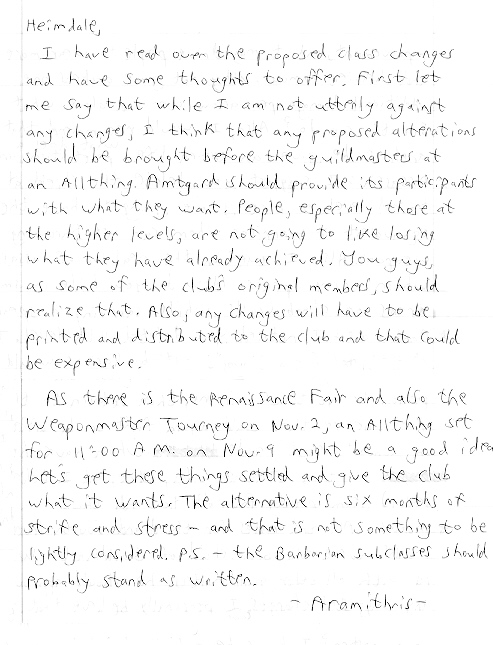 Heimdale,
I have read over the proposed class changes
and have some thoughts to offer. First let
me say that while I am not utterly against
any changes, I think that any proposed alterations
should be brought before the guildmasters at
an Allthing. Amtgard should provide its participants
with what they want. People, especially those at
the higher levels, are not going to like losing
what they have already achieved. You guys,
as some of the club's original members, should
realize that. Also, any changes will have to be
printed and distributed to the club and that could
be expensive.
As there is the Renaissance Fair and also the
Weaponmaster Tourney on Nov. 2, an Allthing set
for 11:00 A.M. on Nov. 9 might be a good idea
Let's get these things settled and give the club
what it wants. The alternative is six months of
strife and stress - and that is not something to be
lightly considered. P.S. - the Barbarian subclasses should
probably stand as written.
- Aramithris -